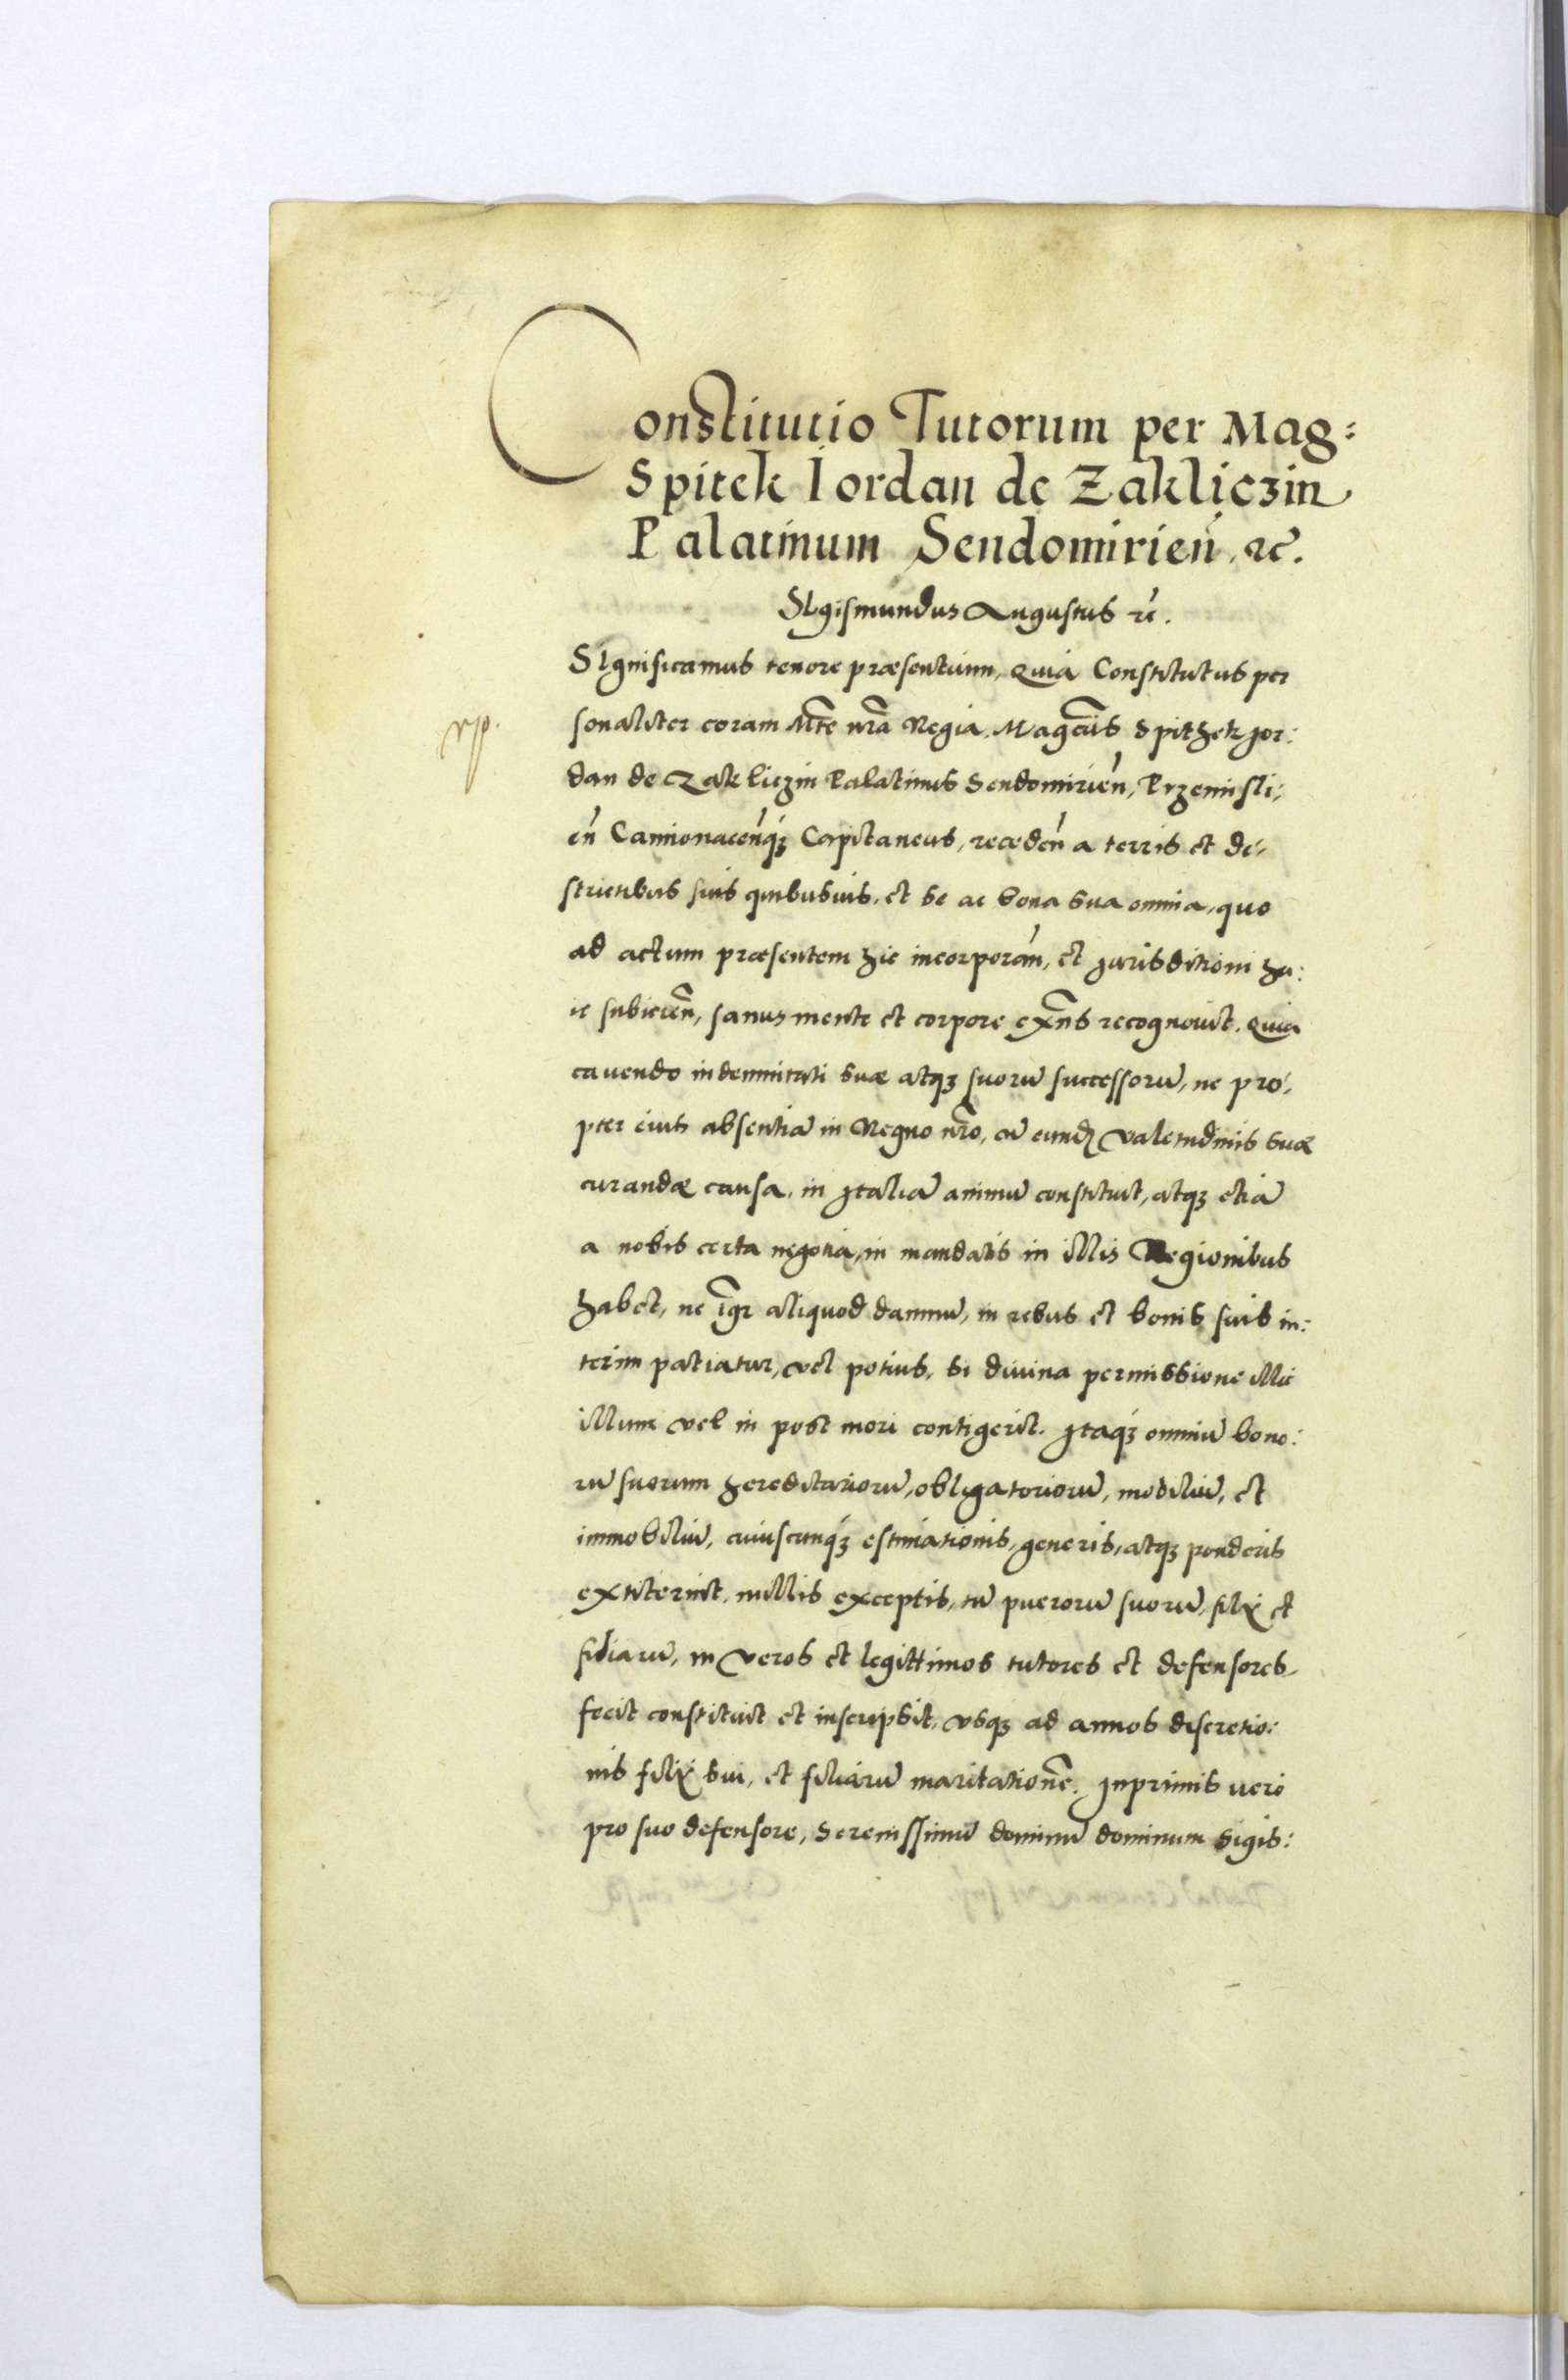 Constitutio Tutorum per Mag:
Spitek Iordan de Zakliczin
Palatinum Sendomirien̄, ⁊c̄.
SIgismundus Augustus ⁊c̄.
SIgnificamus tenore præsentium, quia Constitutus per
sonaliter coram Mt̄e nr̄a Regia. Magc̄us Spithek Jor:
rp.
dan de Zakliczin Palatinus Sendomirien̄, Przemisli:
en̄ Camionacen̄q́ꝫ Capitaneus, receden̄ a terris et di:
strictibus suis quibusuis, et se ac bona sua omnia, quo
ad actum præsentem hic incorporan̄, et jurisditioni hu:
ic subicien̄, sanus mente et corpore exn̄s recognouit. Quia
cauendo indemnitati suæ atqꝫ suorū successorū, ne pro:
pter eius absentiā in Regno nr̄o, cū eund valetudinis suæ
curandæ causa, in Jtaliā animū constituit, atqꝫ etiā
a nobis certa negotia, in mandatis in illis Regionibus
habet, ne igr̄ aliquod damnū, in rebus et bonis suis in:
terim patiatur, vel potius, si diuina permissione illic
illum vel in post mori contigerit. Jtaq́ꝫ omniū bono:
rū suorum hereditariorū, obligatoriorū, mobiliū, et
immobiliū, cuiuscunq́ꝫ estimationis, generis, atqꝫ ponderis
extiterint, nullis exceptis, tū puerorū suorū, filij et
filiarū, in veros et legittimos tutores et defensores
fecit constituit et inscripsit, vsqꝫ ad annos discretio:
nis filij sui, et filiarū maritationē. Jnprimis vero
pro suo defensore, Serenissimū dominū dominum Sigis: